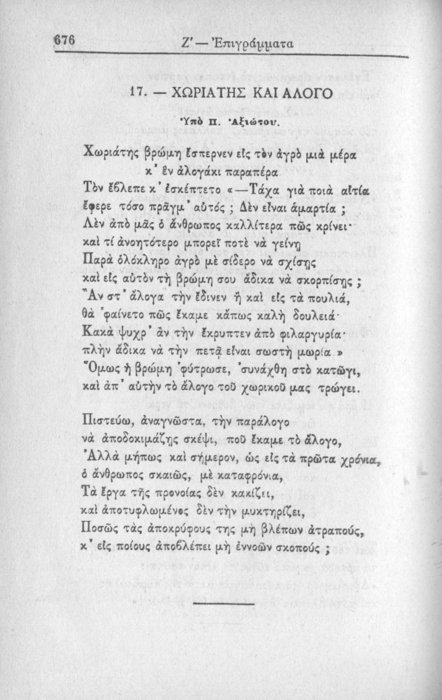 676
Ζ' — Ἐπιγράμματα
17. — ΧΩΡΙΑΤΗΣ ΚΑΙ ΑΛΟΓΟ
Ὑπὸ Π. Ἀξιώτου.
Χωριάτης βρώμη ἔσπερνεν εἰς τὸν ἀγρὸ μιὰ μέρα
κ' ἓν ἀλογάκι παραπέρα
Τὸν ἔβλεπε κ' ἐσκέπτετο «—Τάχα γιὰ ποιὰ αἰτία
ἔφερε τόσο πρᾶγμ' αὐτός ; Δὲν εἶναι ἁμαρτία ;
Λὲν ἀπὸ μᾶς ὁ ἄνθρωπος καλλίτερα πῶς κρίνει·
καὶ τί ἀνοητότερο μπορεῖ ποτὲ νὰ γείνῃ
Παρὰ ὁλόκληρο ἀγρὸ μὲ σίδερο νὰ σχίσῃς
καὶ εἰς αὐτὸν τὴ βρώμη σου ἄδικα νὰ σκορπίσῃς ;
Ἂν στ' ἄλογα τὴν ἔδινεν ἢ καὶ εἰς τὰ πουλιά,
θὰ φαίνετο πῶς ἔκαμε κἄπως καλὴ δουλειά·
Κακὰ ψυχρ' ἂν τὴν ἔκρυπτεν ἀπὸ φιλαργυρία·
πλὴν ἄδικα νὰ τὴν πετᾷ εἶναι σωστὴ μωρία »
Ὅμως ἡ βρώμη 'φύτρωσε, 'συνάχθη στὸ κατῶγι,
καὶ ἀπ' αὐτὴν τὸ ἄλογο τοῦ χωρικοῦ μας τρώγει.
Πιστεύω, ἀναγνῶστα, τὴν παράλογο
νὰ ἀποδοκιμάζῃς σκέψι, ποῦ ἔκαμε τὸ ἄλογο,
Ἀλλὰ μήπως καὶ σήμερον, ὡς εἰς τὰ πρῶτα χρόνια,
ὁ ἄνθρωπος σκαιῶς, μὲ καταφρόνια,
Τὰ ἔργα τῆς προνοίας δὲν κακίζει,
καὶ ἀποτυφλωμένος δὲν τὴν μυκτηρίζει,
Ποσῶς τὰς ἀποκρύφους της μὴ βλέπων ἀτραπούς,
κ' εἰς ποίους ἀποβλέπει μὴ ἐννοῶν σκοπούς ;